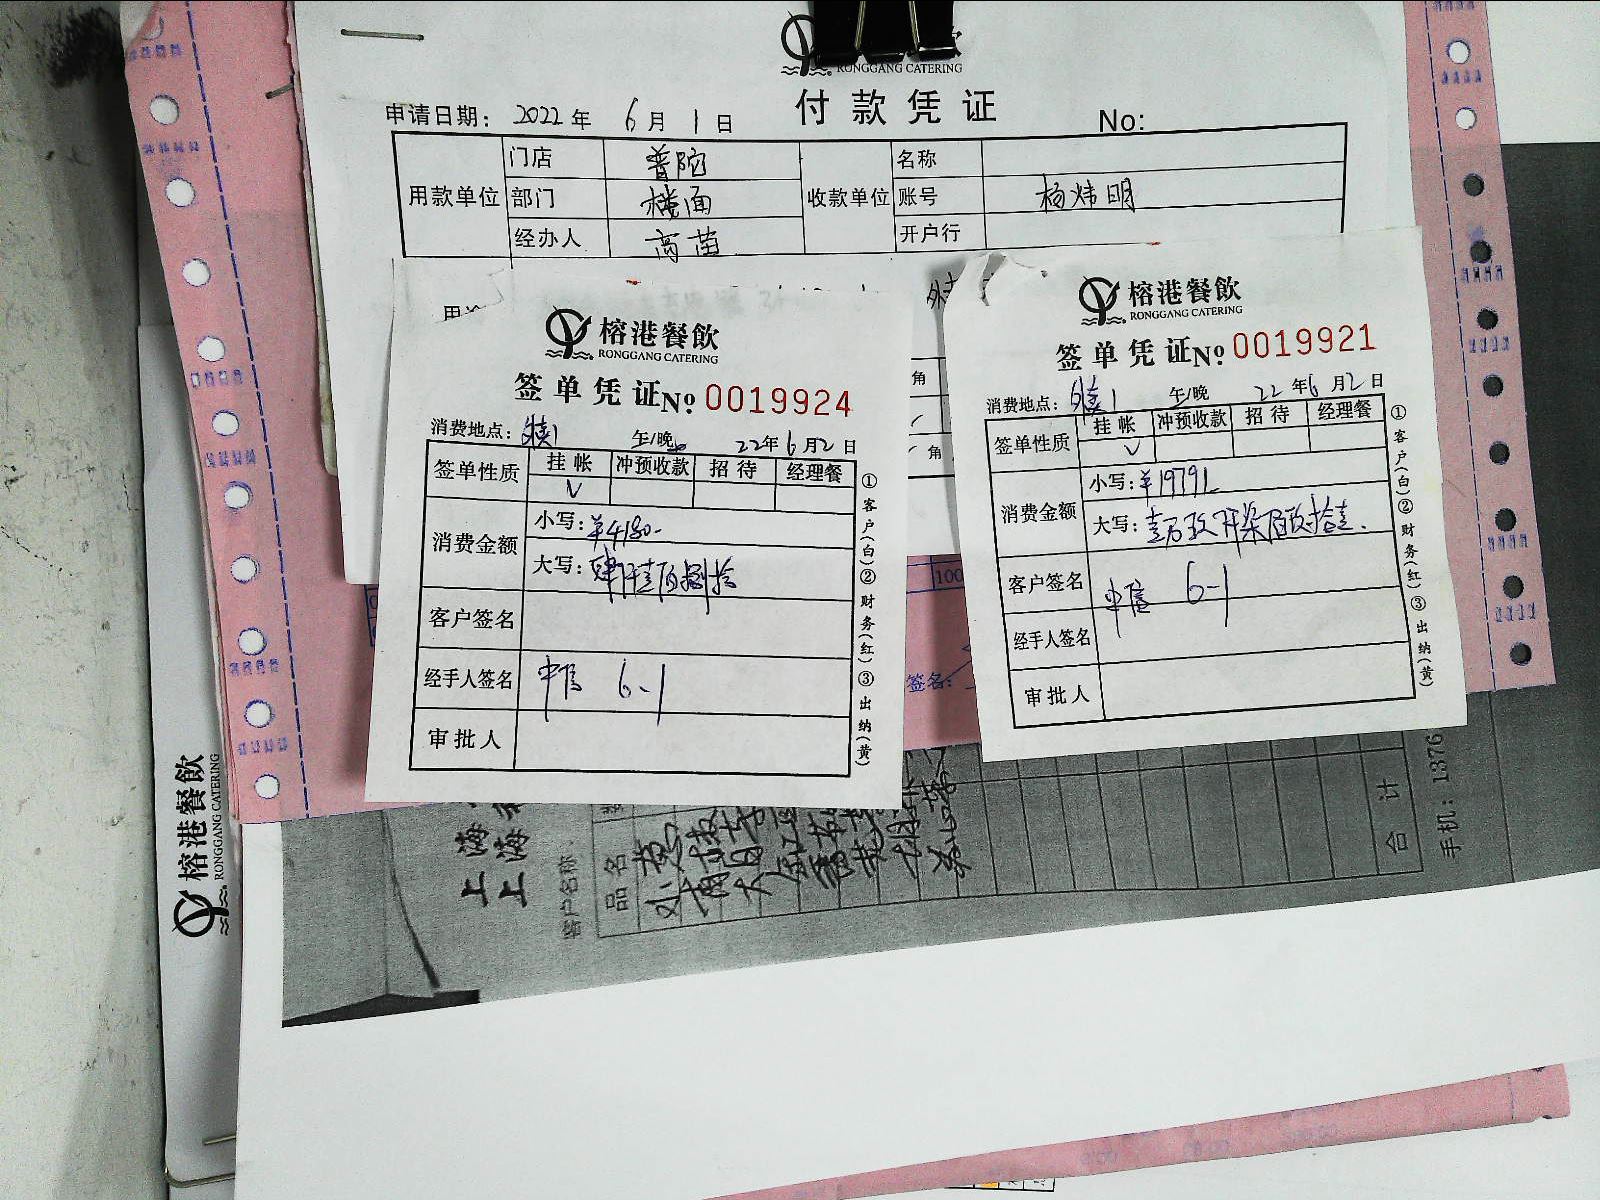 RONGGANG CATERING
付款凭证
申请日期： 2022 年 6 月 1 日 No:
用款单位 门店 普陀 收款单位 名称
部门 楼面 账号 杨炜明
经办人 高苗 开户行
角
角
榕港餐飲
RONGGANG CATERING
签单凭证 No 0019924
消费地点： 午/晚 22年 6 月 2 日
签单性质 挂帐 冲预收款 招待 经理餐
V
消费金额 小写：¥4180-
大写：肆仟壹佰捌拾
客户签名
经手人签名 中信 6-1
审批人
①客户(白)②财务(红)③出纳(黄)
榕港餐飲
RONGGANG CATERING
签单凭证 No 0019921
消费地点： 午/晚 22 年 6 月 2 日
签单性质 挂帐 冲预收款 招待 经理餐
V
消费金额 小写：¥19791-
大写：壹万玖仟柒佰玖拾壹
客户签名 中信 6-1
经手人签名
审批人
①客户(白)②财务(红)③出纳(黄)
100
签名：
榕港餐飲
RONGGANG CATERING
上海
上海
客户名称
品名
合计
手机：1376